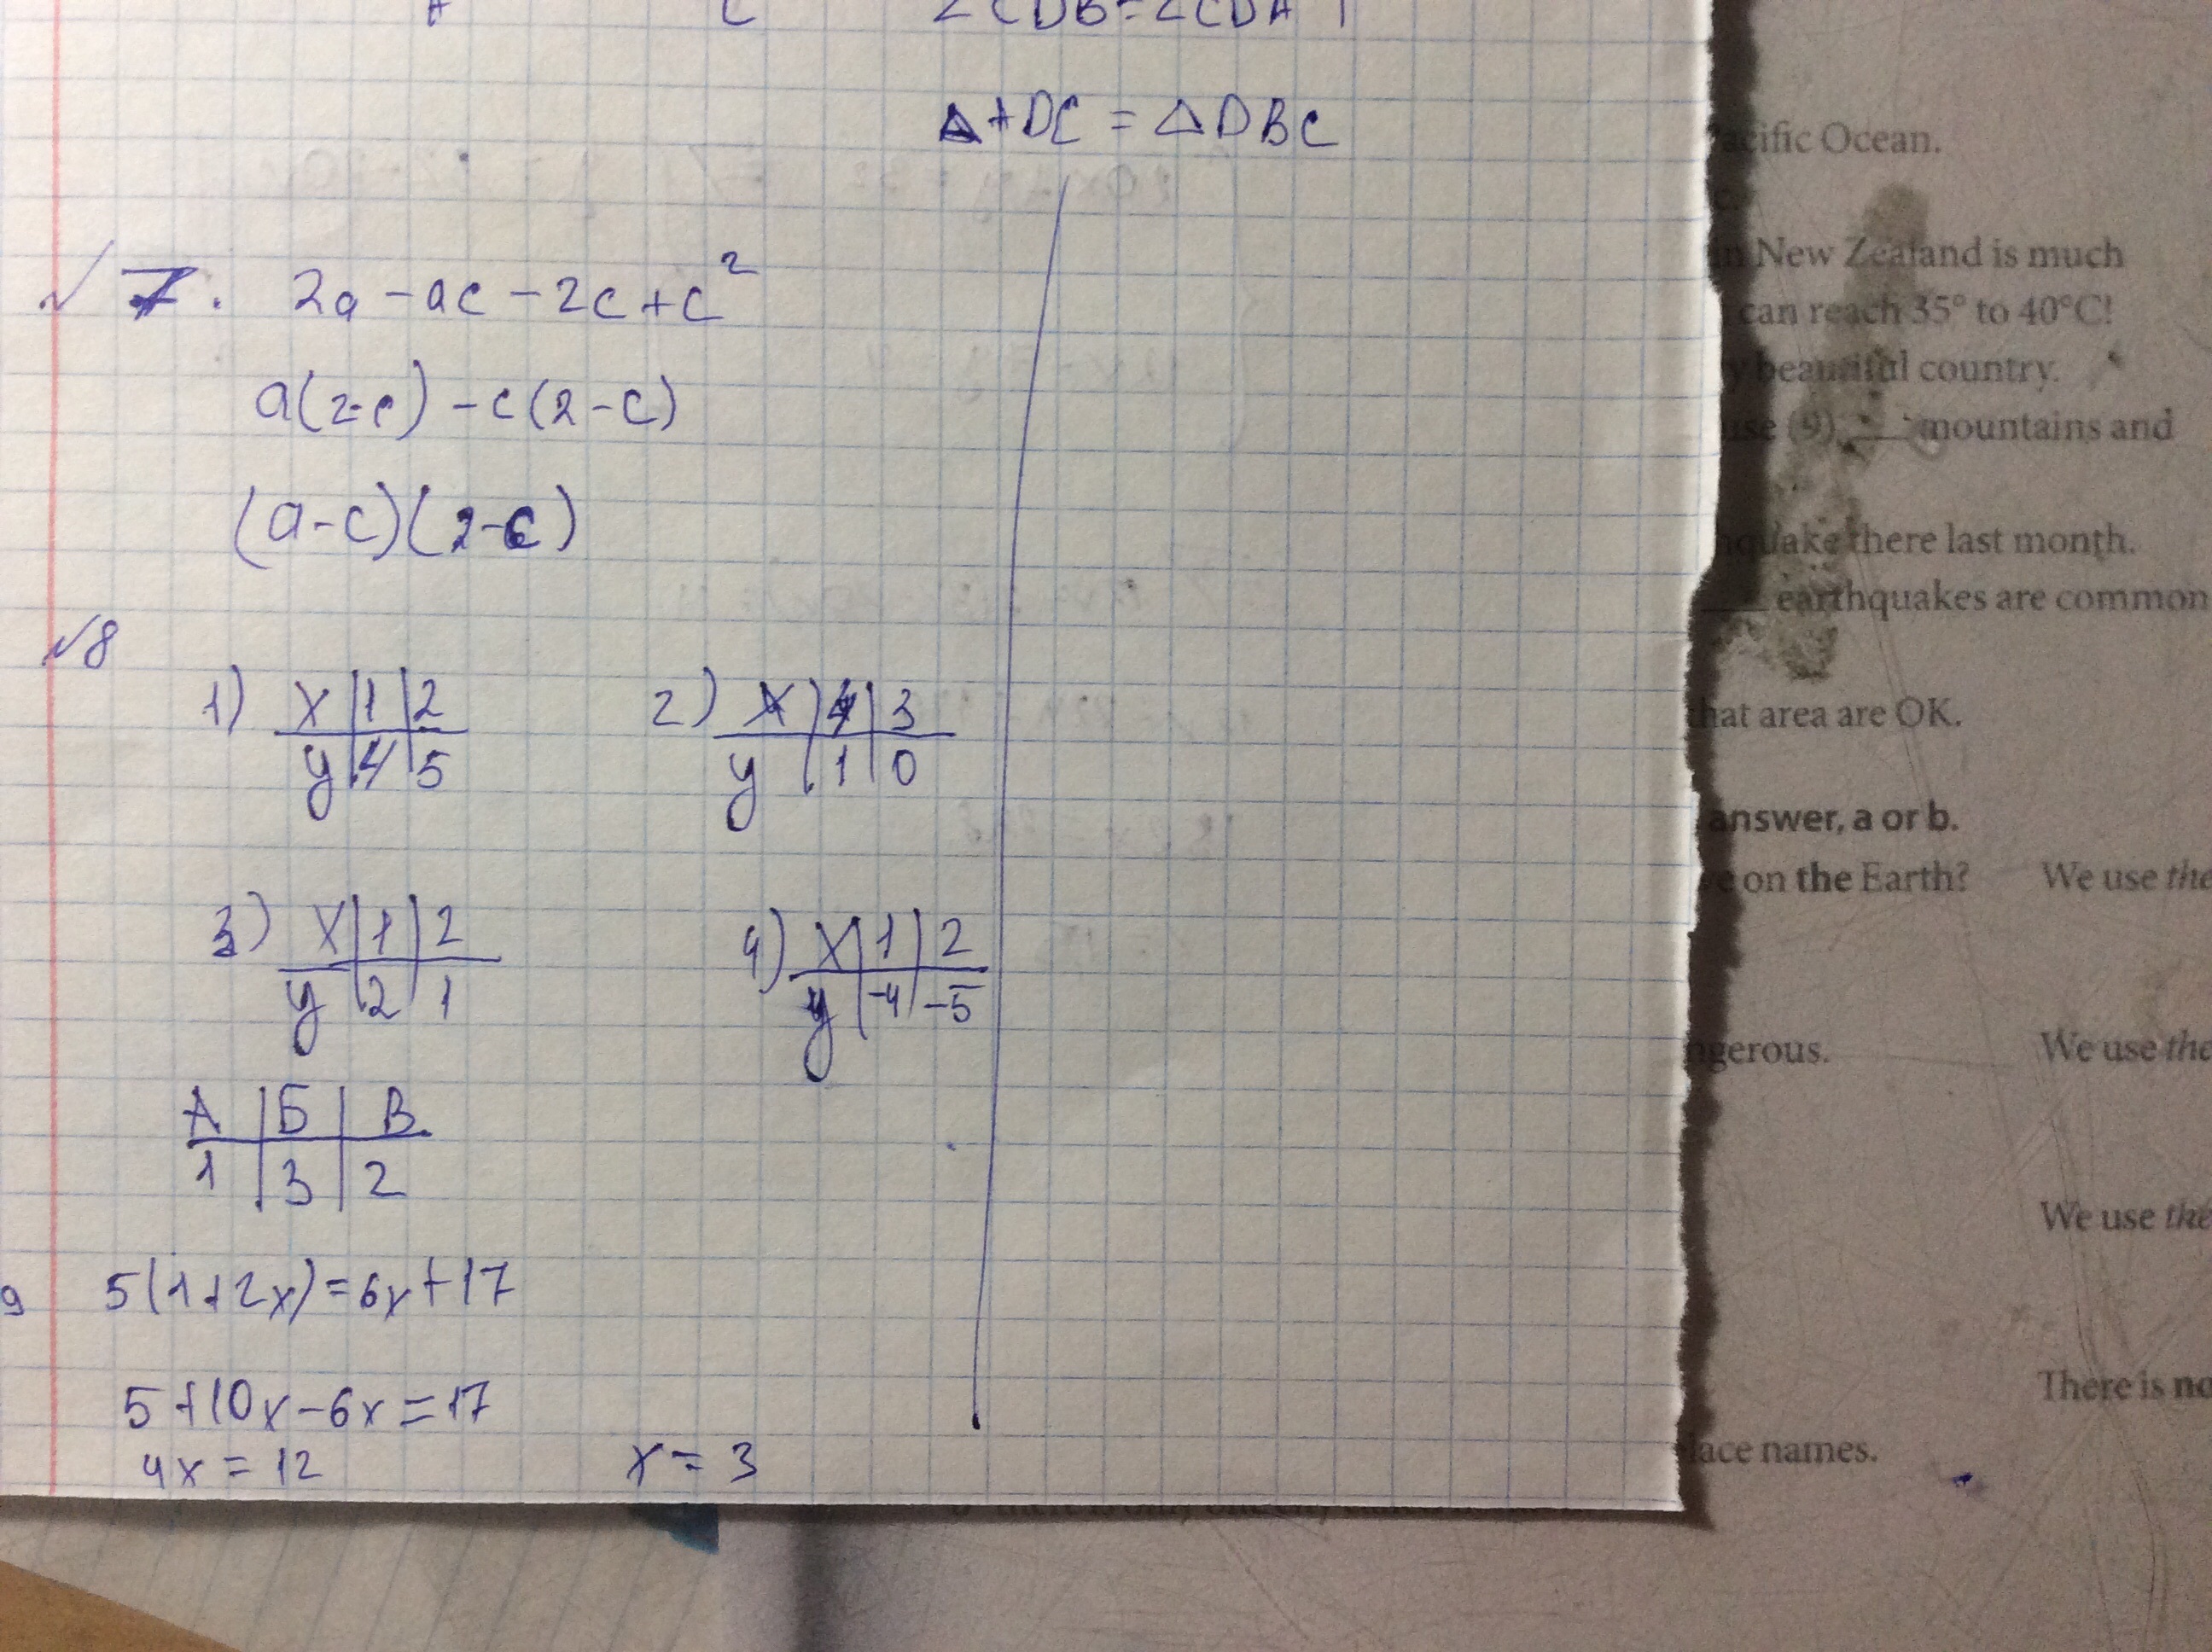 ∠CDB = ∠CDA
ΔADC = ΔDBC
√ 7. 2a - ac - 2c + c²
a(2-c) - c(2-c)
(a-c)(2-c)
√8
1) x | 1 | 2
y | 4 | 5
2) x | 4 | 3
y | 1 | 0
3) x | 1 | 2
y | 2 | 1
4) x | 1 | 2
y | -4 | -5
А | Б | В
1 | 3 | 2
9 5(1+2x)=6x+17
5+10x-6x=17
4x = 12 x = 3
acific Ocean.
n New Zealand is much
can reach 35° to 40°C!
y beautiful country.
use (9) ___ mountains and
quake there last month.
___ earthquakes are common
hat area are OK.
answer, a or b.
e on the Earth? We use the
ngerous. We use the
We use the
There is no
lace names.